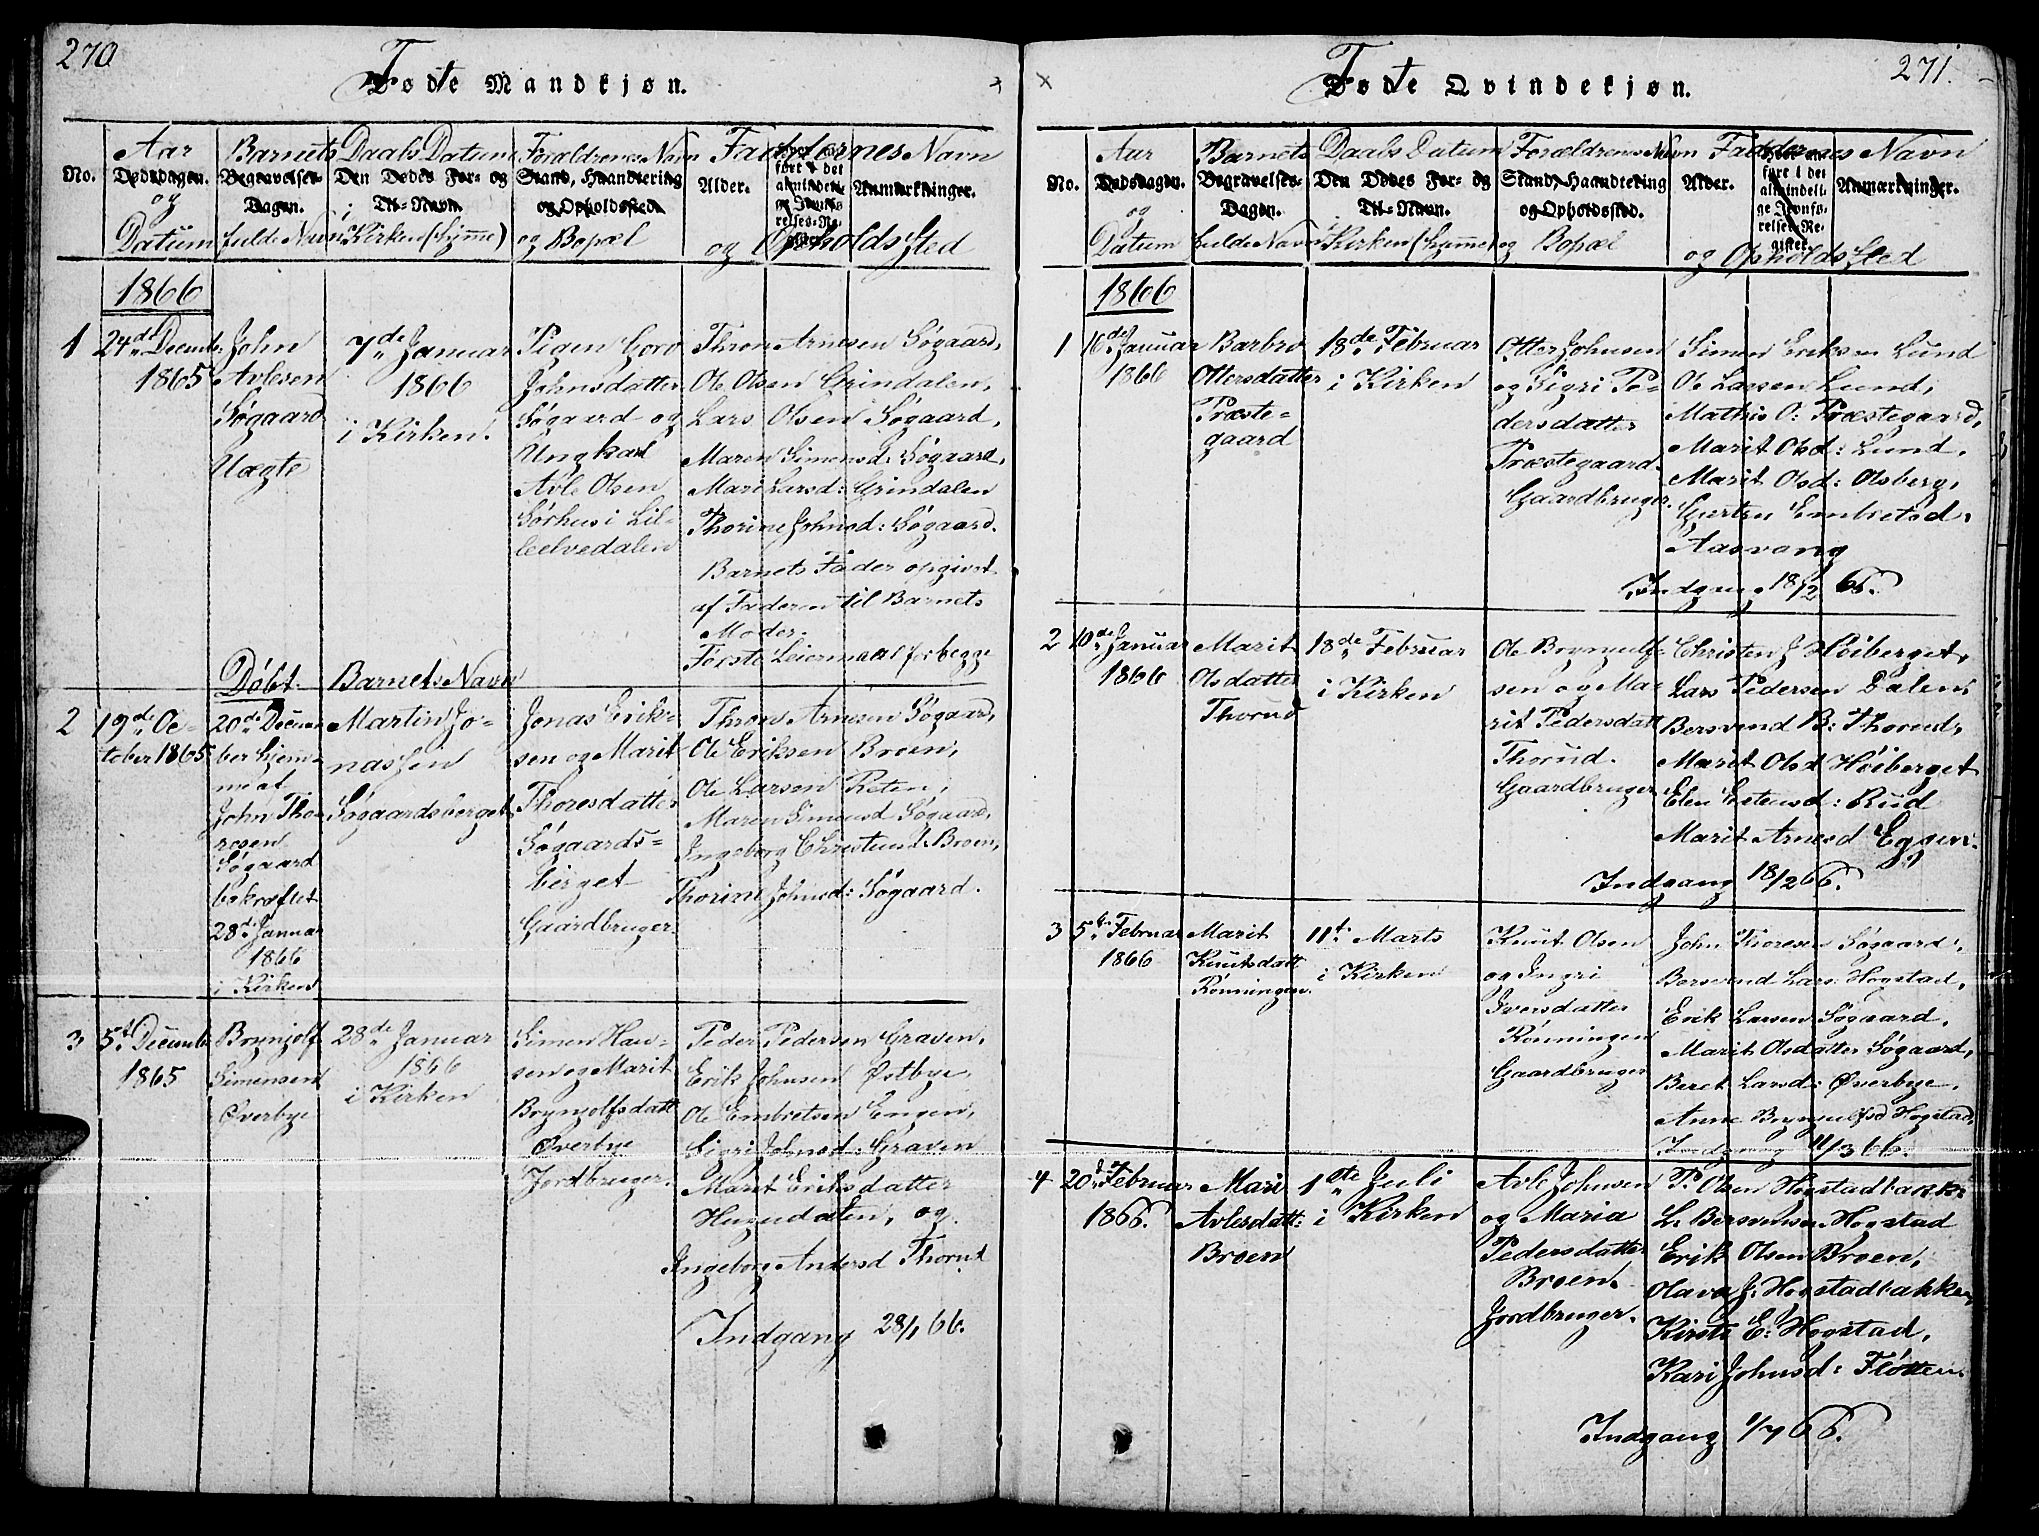 270
Fødte Mandkjøn.
No.
Aar
Dødsdagen.
og
Datum
Barnets
Begravelses-
Dagen.
fulde Navn
Daabs Datum
Den Dødes For- og
Til-Navn.
i Kirken (hjemme)
Forældrenes Navn
Stand, Haandtering
og Opholdssted.
og Bopæl
Faddernes Navn
Alder.
Anmærkninger.
og Opholds Sted
1866
1
24de Decemb:
1865
John
Avlesen
Søgaard
Uægte
7de Januar
1866
i Kirken.
Pigen Goro
Johnsdatter
Søgaard og
Ungkarl
Avle Olsen
Sørhus i Lil-
leelvedalen
Thron Arnesen Søgaard,
Ole Olsen Grindalen,
Lars Olsen Søgaard,
Maren Simensd: Søgaard,
Mari Larsd: Grindalen
Thorine Johnsd: Søgaard.
Barnets Fader opgivet
af Faderen til Barnets
Moder.
Første Leiermaal for begge
Døbt.
Barnets Navn
2
19de Oc-
tober 1865
20de Decem-
ber hjem-
me af
John Tho-
resen
Søgaard
bekræftet
28de Januar
1866
i Kirken
Martin Jo-
nassen
Søgaardsberget
Jonas Erik-
sen og Marit
Thoresdatter
Søgaards-
berget
Gaardbruger.
Thron Arnesen Søgaard,
Ole Eriksen Broen,
Ole Larsen Reten,
Maren Simensd Søgaard,
Ingeborg Christensd: Broen,
Thorine Johnsd: Søgaard.
3
5t Decemb:
1865
Brynjolf
Simensen
Øverbye
28de Januar
1866
i Kirken
Simen Han-
sen og Marit
Brynjolfsdatt
Øverbye
Jordbruger.
Peder Pedersen Graven,
Erik Johnsen Østbye,
Ole Embretsen Engen,
Sigri Johnsd: Graven
Marit Eriksdatter
og
Ingeborg Andersd Thorud
Indgang 28/1 66.
271.
Fødte Qvindekjøn.
No.
Aar
Dødsdagen.
og
Datum
Barnets
Begravelses-
Dagen.
fulde Navn
Daabs Datum
Den Dødes For- og
Til-Navn.
i Kirken (hjemme)
Forældrenes Navn
Stand, Haandtering
og Opholdssted.
og Bopæl
Faddernes Navn
Alder.
Hvor an-
føre i det
almindeli-
ge Jevnfø-
relses-Re-
gister.
Anmærkninger.
og Opholds Sted
1866
1
16de Januar
1866
Barbro
Ottersdatter
Præste-
gaard
18de Februar
i Kirken
Otter Johnsen
og Sigri Pe-
dersdatter
Præstegaard.
Gaardbruger.
Simen Eriksen Lund
Ole Larsen Lund,
Mathis O: Præstegaard,
Marit Olsd: Lund,
Marit Olsd: Olsberg,
Embretsd.
Aasvang
Indgang 18/2 66.
2
10de Januar
1866
Marit
Olsdatter
Thorud
18de Februar
i Kirken
Ole Brynjulf-
sen og Ma-
rit Pedersdatt
Thorud.
Gaardbruger
Christen J Høiberget,
Lars Pedersen Dalen,
Bersvend B: Thorud,
Marit Olsd Høiberget
Elen Estensd: Rud
Marit Arnesd Eggen.
Indgang 18/2 66.
3
5te Februar
1866
Marit
Knutsdatt
Rønningen.
11te Marts
i Kirken
Knut Olsen
og Ingri
Iversdatter
Rønningen
Gaardbruger
John Thoresen Søgaard,
Bersvend Lars: Hogstad,
Erik Larsen Søgaard,
Marit Olsdatter Søgaard,
Beret Larsd: Øverbye,
Anne Brynjulfsd Hogstad,
Indgang 11/3 66.
4
20d Februar
1866.
Mari
Avlesdatt:
Broen
1ste Juli
i Kirken
Avle Johnsen
og Maria
Pedersdatter
Broen.
Jordbruger.
P. Olsen Hogstadbakk:
L. Bersvensen Hogstad
Erik Olsen Broen,
Olava J: Hogstadbakken,
Kirsti E: Hogstad,
Kari Johnsd: Fløtten.
Indgang 1/7 66.